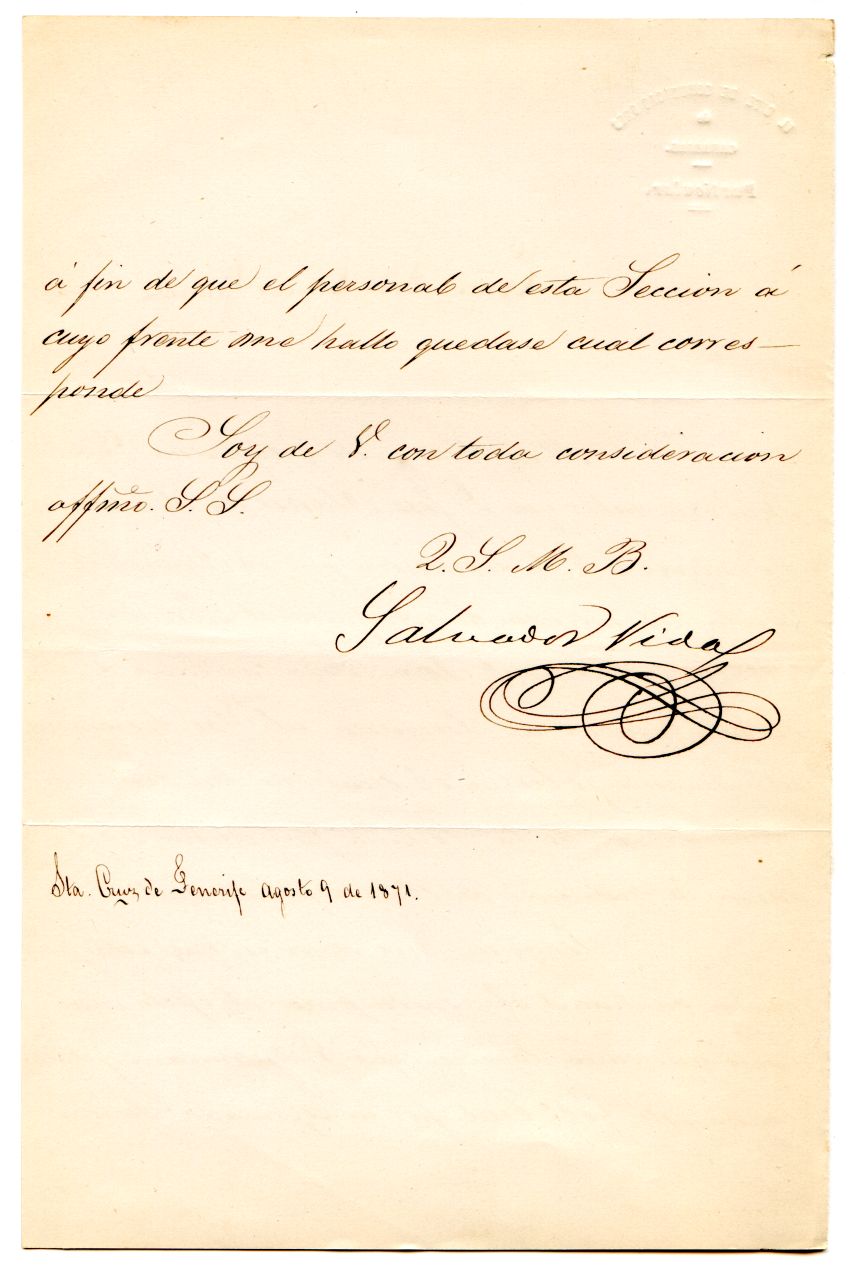 á fin de que el personal de esta Seccion á
cuyo frente me hallo quedase cual corres-
ponde
Soy de V. con toda consideracion
affmo. S. S.
Q. S. M. B.
Salvador Vidal
Sta. Cruz de Tenerife Agosto 9 de 1871.